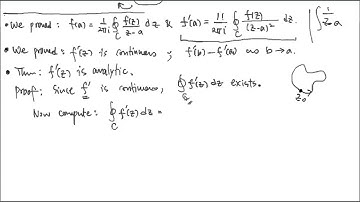 • We proved: f(a) = 1/2πi ∮_C f(z)/z-a dz & f'(a) = 1!/2πi ∮_C f(z)/(z-a)² dz. ∫ 1/z-a
• We proved: f'(z) is continuous, f'(b) → f'(a) as b → a.
• Thm: f'(z) is analytic.
Proof: Since f' is continuous, ∮ f'(z) dz exists.
z₀
Now compute: ∮_C f'(z) dz =